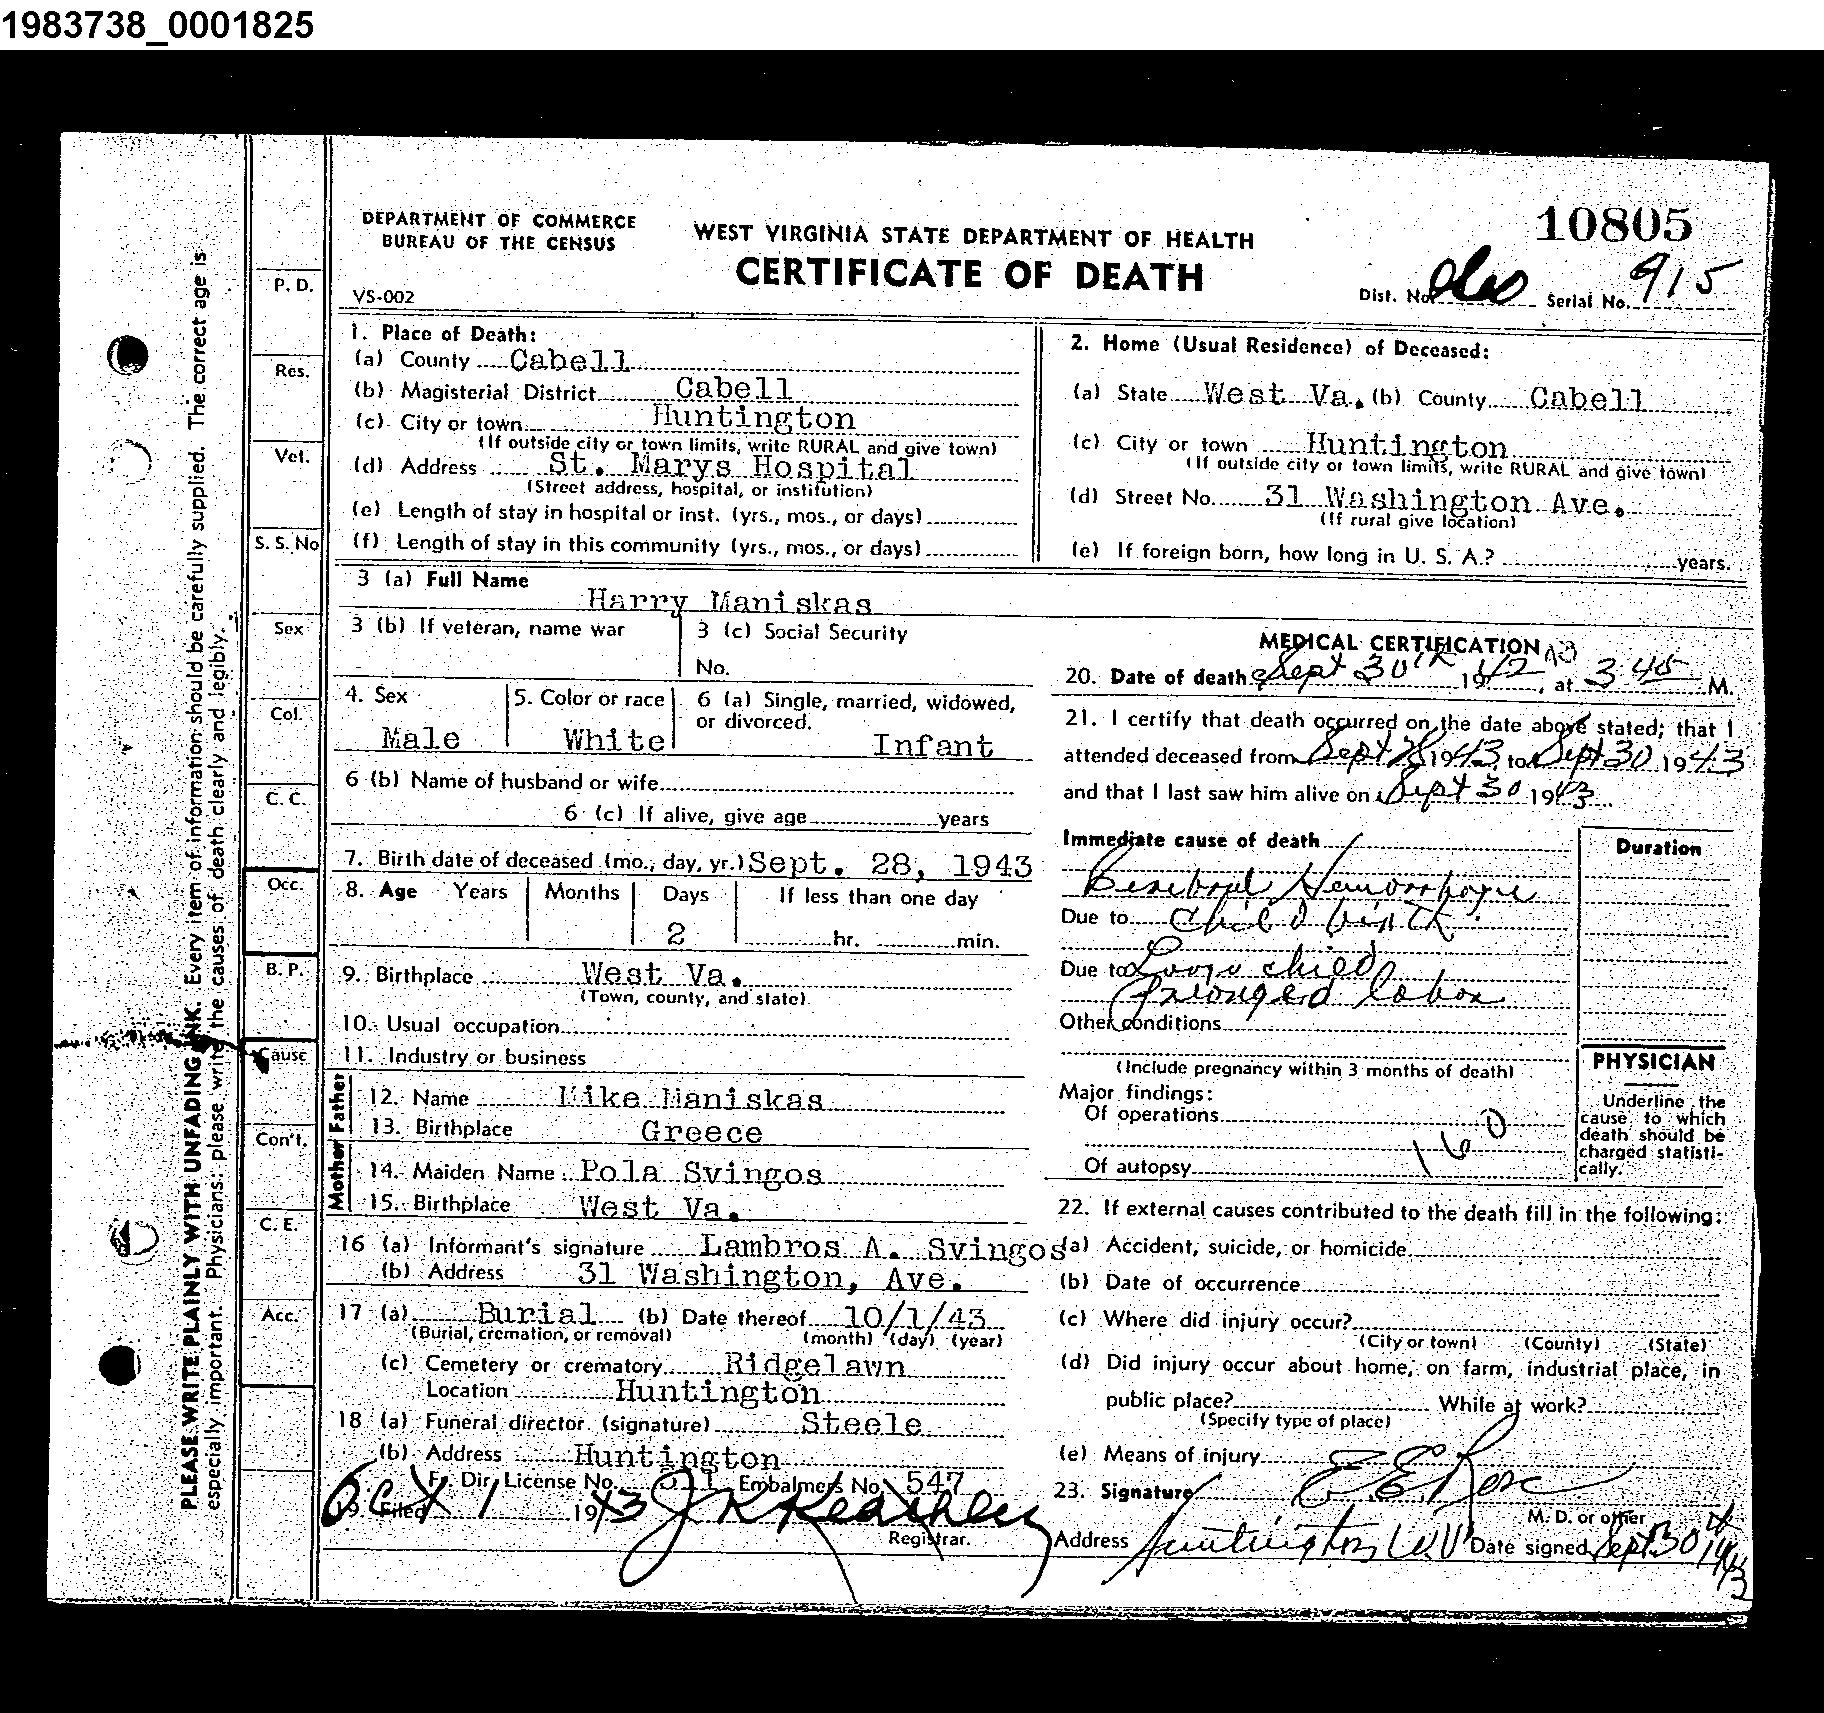 1983738_0001825
PLEASE WRITE PLAINLY WITH UNFADING INK. Every item of information should be carefully supplied. The correct age is
especially important. Physicians: please write the causes of death clearly and legibly.
P. D.
Res.
Vet.
S. S. No
Sex
Col.
C. C.
Occ.
B. P.
Cause
Con't.
C. E.
Acc.
DEPARTMENT OF COMMERCE
BUREAU OF THE CENSUS
VS-002
WEST VIRGINIA STATE DEPARTMENT OF HEALTH
CERTIFICATE OF DEATH
10805
Dist. No. Serial No. 915
1. Place of Death:
(a) County Cabell
(b) Magisterial District Cabell
(c) City or town Huntington
(If outside city or town limits, write RURAL and give town)
(d) Address St. Marys Hospital
(Street address, hospital, or institution)
(e) Length of stay in hospital or inst. (yrs., mos., or days)
(f) Length of stay in this community (yrs., mos., or days)
2. Home (Usual Residence) of Deceased:
(a) State West Va. (b) County Cabell
(c) City or town Huntington
(If outside city or town limits, write RURAL and give town)
(d) Street No. 31 Washington Ave.
(If rural give location)
(e) If foreign born, how long in U. S. A.? years.
3 (a) Full Name
Harry Maniskas
3 (b) If veteran, name war
3 (c) Social Security
No.
4. Sex
Male
5. Color or race
White
6 (a) Single, married, widowed,
or divorced.
Infant
6 (b) Name of husband or wife
6 (c) If alive, give age years
7. Birth date of deceased (mo., day, yr.) Sept. 28, 1943
8. Age Years Months Days If less than one day
2 hr. min.
9. Birthplace West Va.
(Town, county, and state)
10. Usual occupation
11. Industry or business
Father
12. Name Mike Maniskas
13. Birthplace Greece
Mother
14. Maiden Name Pola Svingos
15. Birthplace West Va.
16 (a) Informant's signature Lambros A. Svingos
(b) Address 31 Washington, Ave.
17 (a) Burial (b) Date thereof 10/1/43
(Burial, cremation, or removal) (month) (day) (year)
(c) Cemetery or crematory Ridgelawn
Location Huntington
18 (a) Funeral director (signature) Steele
(b) Address Huntington
F. Dir. License No. 311 Embalmers No. 547
19. Filed Oct 1 1943 J R Keathley
Registrar.
MEDICAL CERTIFICATION
20. Date of death Sept 30th 1942 43, at 3 45 M.
21. I certify that death occurred on the date above stated; that I
attended deceased from Sept 28 1943, to Sept 30 1943
and that I last saw him alive on Sept 30 1943
Immediate cause of death
Cerebral Hemorrhage
Due to child birth
Due to Large child
prolonged labor
Other conditions
(Include pregnancy within 3 months of death)
Major findings:
Of operations
160
Of autopsy
Duration
PHYSICIAN
Underline the
cause to which
death should be
charged statisti-
cally.
22. If external causes contributed to the death fill in the following:
(a) Accident, suicide, or homicide
(b) Date of occurrence
(c) Where did injury occur?
(City or town) (County) (State)
(d) Did injury occur about home, on farm, industrial place, in
public place? While at work?
(Specify type of place)
(e) Means of injury
23. Signature E. E. Rose
M. D. or other
Address Huntington W V Date signed Sept 30th 1943